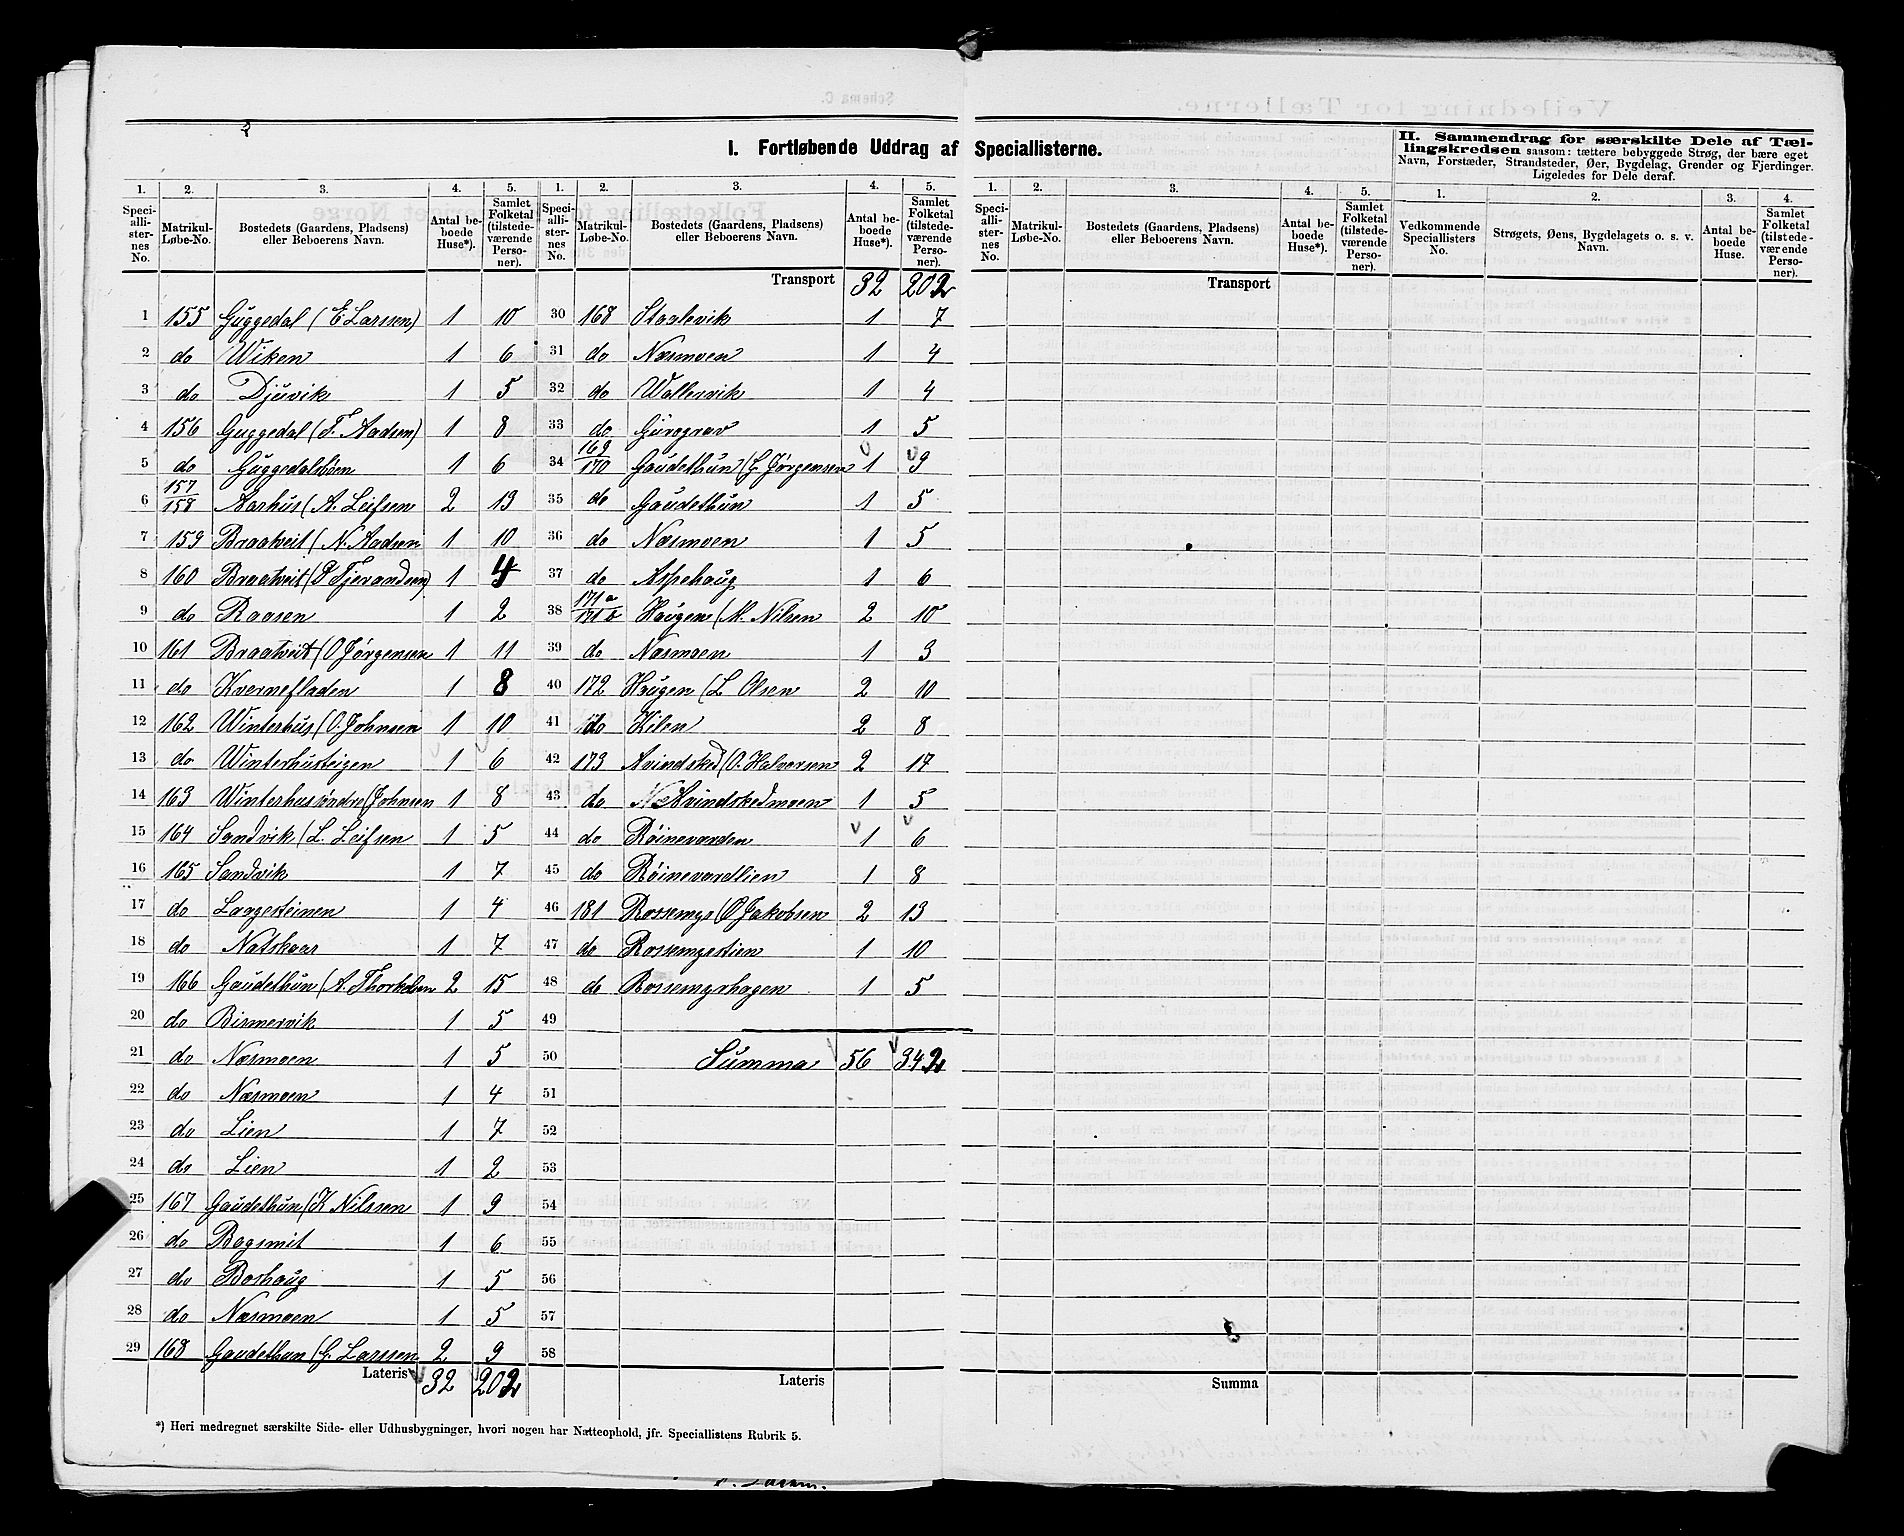 I. Fortløbende Uddrag af Speciallisterne.
II. Sammendrag for særskilte Dele af Tæl-
lingskredsen saasom: tættere bebyggede Strøg, der bære eget
Navn, Forstæder, Strandsteder, Øer, Bygdelag, Grender og Fjerdinger.
Ligeledes for Dele deraf.
1. 2. 3. 4. 5. 1. 2. 3. 4. 5. 1. 2. 3. 4. 5. 1. 2. 3. 4.
Speciallisternes No. Matrikul-Løbe-No. Bostedets (Gaardens, Pladsens) eller Beboerens Navn. Antal beboede Huse*). Samlet Folketal (tilstedeværende Personer).
Speciallisternes No. Matrikul-Løbe-No. Bostedets (Gaardens, Pladsens) eller Beboerens Navn. Antal beboede Huse*). Samlet Folketal (tilstedeværende Personer).
Speciallisternes No. Matrikul-Løbe-No. Bostedets (Gaardens, Pladsens) eller Beboerens Navn. Antal beboede Huse*). Samlet Folketal (tilstedeværende Personer).
Vedkommende Speciallisters No. Strøgets, Øens, Bygdelagets o. s. v. Navn. Antal beboede Huse. Samlet Folketal (tilstedeværende Personer).
1 155 Guggedal (E. Larssen) 1 10
2 do Wiken 1 6
3 do Djuvik 1 5
4 156 Guggedal (T. Aadsen) 1 8
5 do Guggedalsbøen 1 6
6 157/158 Aarhus (A. Leifsen 2 13
7 159 Braatveit (N. Aadsen 1 10
8 160 Braatveit (P Tjerandsen) 1 4
9 do Raasen 1 2
10 161 Braatveit (O Jørgensen 1 11
11 do Kvernefladen 1 8
12 162 Winterhus (O. Johnsen 1 10
13 do Winterhusteigen 1 6
14 163 Winterhus søndre (Johnsen 1 8
15 164 Sandvik (L. Leifsen 1 5
16 165 Sandvik 1 7
17 do Laagesteinen 1 4
18 do Natskaar 1 7
19 166 Gaudethun (A. Thorkelsen 2 15
20 do Bismervik 1 5
21 do Næsmoen 1 5
22 do Næsmoen 1 4
23 do Lien 1 7
24 do Lien 1 2
25 167 Gaudethun (K Nilssen 1 9
26 do Bagsmit 1 6
27 do Boshaug 1 5
28 do Næsmoen 1 5
29 168 Gaudethun (G. Larssen 2 9
Lateris 32 202
Transport 32 202
30 168 Staalevik 1 7
31 do Næsmoen 1 4
32 do Wallervik 1 4
33 do Gurograv 1 5
34 169/170 Gaudethun (G. Jørgensen 1 9
35 do Gaudethun 1 5
36 do Næsmoen 1 5
37 do Aspehaug 1 6
38 171a/171b Haugen (M. Nilsen 2 10
39 do Næsmoen 1 3
40 172 Haugen (L Olsen 2 10
41 do Kilen 2 8
42 173 Avindsked (O. Halvorsen 2 17
43 do Avindskedmoen 1 5
44 do Röinevarden 1 6
45 do Röinevardlien 1 8
46 181 Rossemyr (O Jakobsen 2 13
47 do Rossemyrstien 1 10
48 do Rossemyrhagen 1 5
49
50 Summa 56 342
51
52
53
54
55
56
57
58
Lateris
Transport
Summa
*) Heri medregnet særskilte Side- eller Udhusbygninger, hvori nogen har Natteophold, jfr. Speciallistens Rubrik 5.